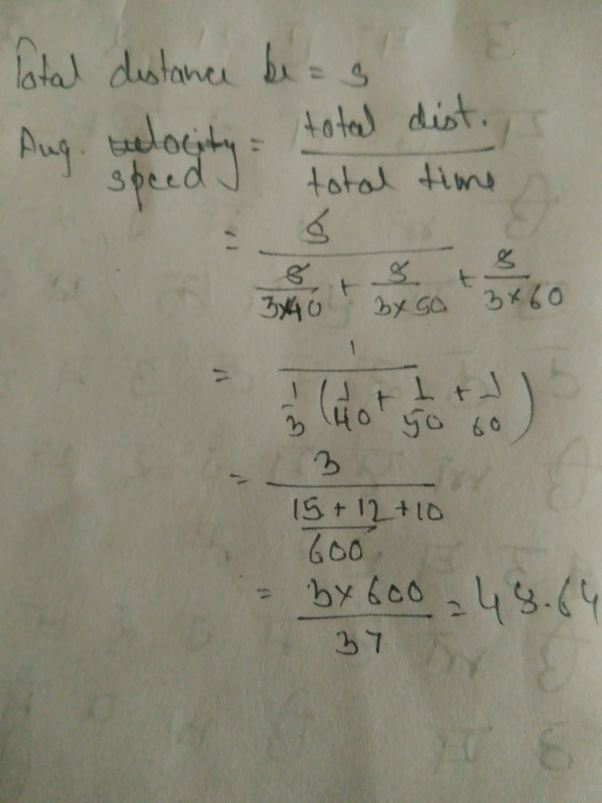 Total distance be = s
Avg. velocity speed = total dist. / total time
= s / (s/3×40 + s/3×50 + s/3×60)
= 1 / (1/3 (1/40 + 1/50 + 1/60))
= 3 / ((15 + 12 + 10)/600)
= 3×600 / 37 = 48.64